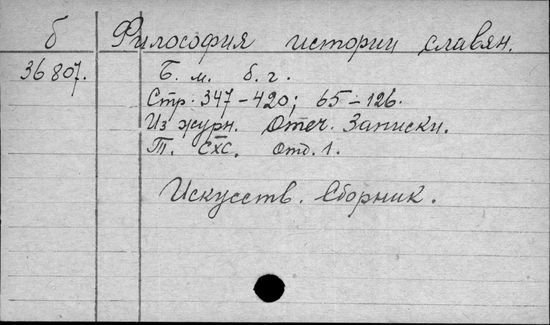 б Философия истории славян.
36807. Б. м. б. г.
Стр. 347-420; 65-126.
Из журн. Отеч. Записки.
Т. СХС. Отд. 1.
Искусств. Сборник.